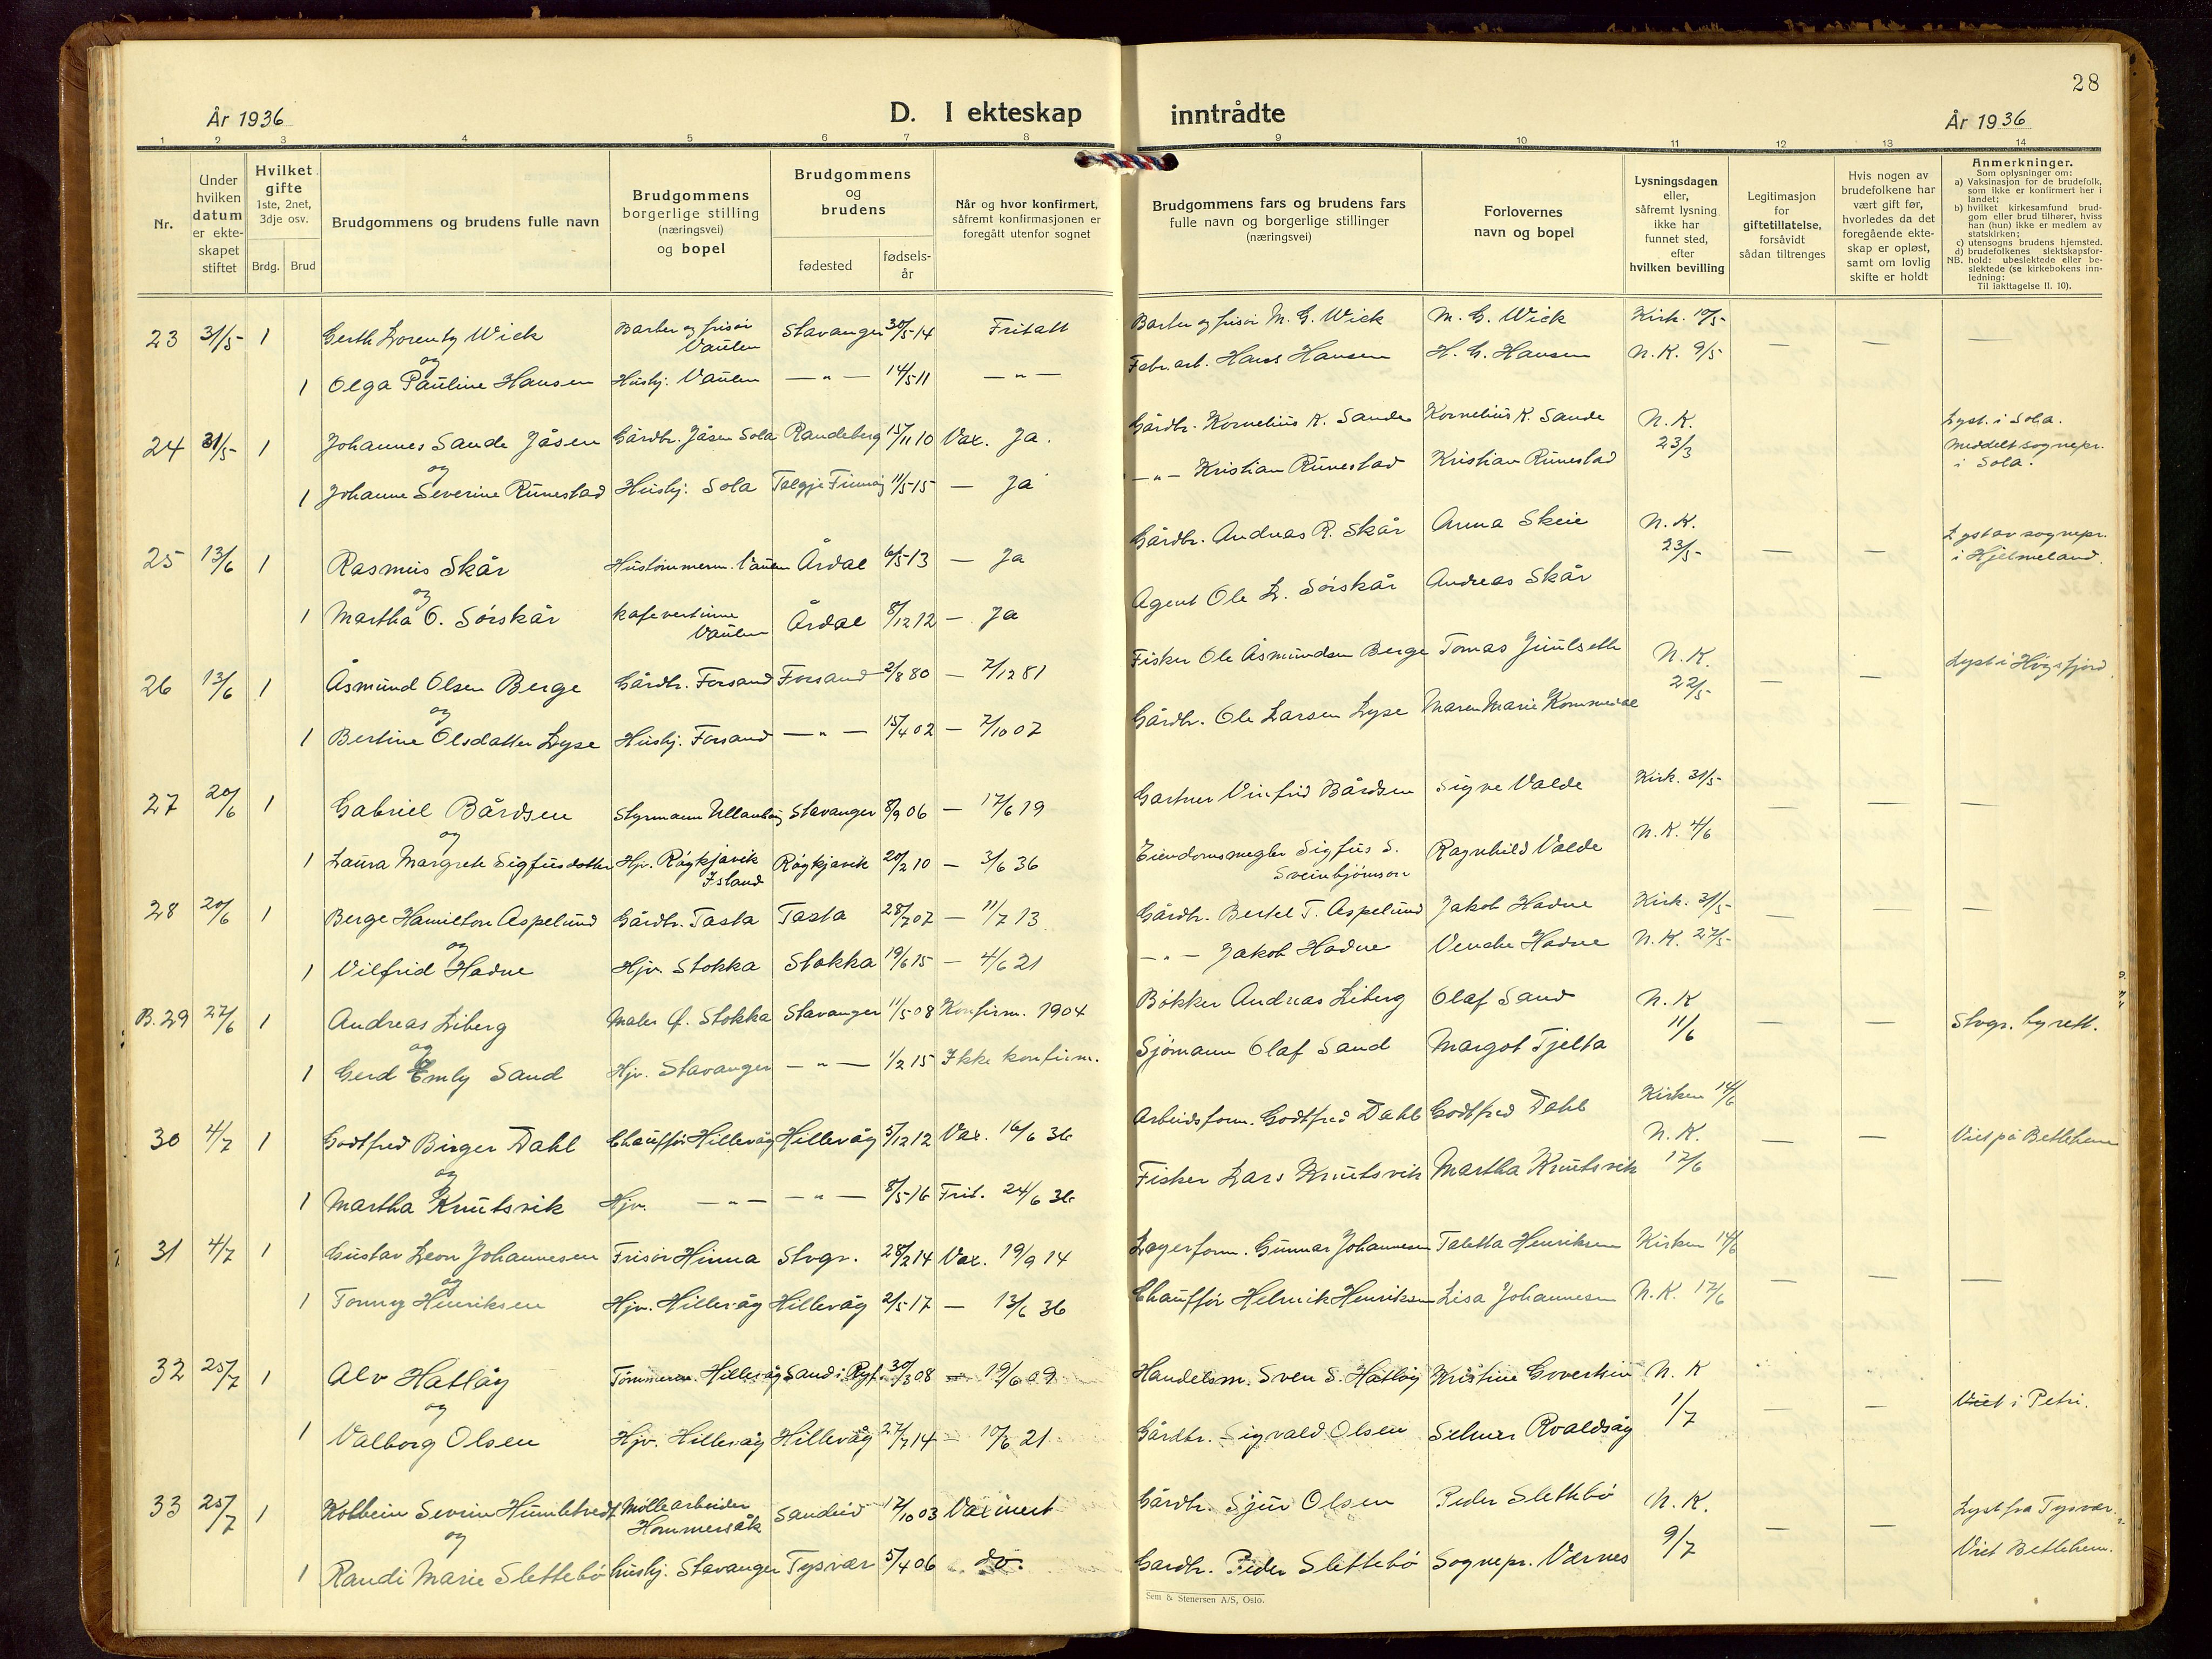 28
År 1936
D. I ekteskap inntrådte
År 1936
1 2 3 4 5 6 7 8 9 10 11 12 13 14
Nr.
Under hvilken datum er ekteskapet stiftet
Hvilket gifte 1ste, 2net, 3dje osv.
Brdg. Brud
Brudgommens og brudens fulle navn
Brudgommens borgerlige stilling (næringsvei) og bopel
Brudgommens og brudens
fødested
fødselsår
Når og hvor konfirmert, såfremt konfirmasjonen er foregått utenfor sognet
Brudgommens fars og brudens fars fulle navn og borgerlige stillinger (næringsvei)
Forlovernes navn og bopel
Lysningsdagen eller, såfremt lysning ikke har funnet sted, efter hvilken bevilling
Legitimasjon for giftetillatelse, forsåvidt sådan tiltrenges
Hvis nogen av brudefolkene har vært gift før, hvorledes da det foregående ekteskap er opløst, samt om lovlig skifte er holdt
Anmerkninger.
Som oplysninger om:
a) Vaksinasjon for de brudefolk, som ikke er konfirmert her i landet;
b) hvilket kirkesamfund brudgom eller brud tilhører, hviss han (hun) ikke er medlem av statskirken;
c) utensogns brudens hjemsted.
d) brudefolkenes slektskapsforhold: ubeslektede eller beslektede (se kirkebokens innledning:
NB.
Til iakttagelse II. 10).
23 31/5 1 Gerth Lorentz Wick Barber og frisør Vaulen Stavanger 30/5 14 Fritatt Barber og frisør M. G. Wick M. G. Wick Kirk. 10/5 — — —
og
1 Olga Pauline Hansen Husbj. Vaulen — " — 14/5 11 — " — Fabr. arb. Hans Hansen H. G. Hansen N. K. 9/5
24 31/5 1 Johannes Sande Jåsen Gårdbr. Jåsen Sola Randeberg 15/11 10 Vax. Ja. Gårdbr. Kornelius K. Sande Kornelius K. Sande N. K. 23/3 Lyst. i Sola. Meddelt sognepr. i Sola.
og
1 Johanne Severine Runestad Husbj. Sola Talgje Finnøy 11/5 15 — Ja — " — Kristian Runestad Kristian Runestad
25 13/6 1 Rasmus Skår Hustømmerm. Vaulen Årdal 6/5 13 — Ja Gårdbr. Andreas R. Skår Anna Skeie N. K. 23/5 — — Lyst av sognepr. i Hjelmeland.
og
1 Martha O. Sørskår Kafevertinne Vaulen Årdal 8/12 12 — Ja Agent Ole L. Sørskår Andreas Skår
26 13/6 1 Åsmund Olsen Berge Gårdbr. Forsand Forsand 2/8 80 — 7/12 81 Fisker Ole Åsmundsen Berge Tomas N. K. 22/5 — — Lyst i Høgsfjord.
og
1 Bertine Olsdatter Lyse Husbj. Forsand — " — 15/4 02 — 7/10 02 Gårdbr. Ole Larsen Lyse Maren Marie Kommedal
27 20/6 1 Gabriel Bårdsen Styrmann Ullanhaug Stavanger 8/9 06 — 17/6 19 Gartner Vinfrid Bårdsen Sigve Valde Kirk. 31/5 — — —
og
1 Laura Margrete Sigfusdatter Hjv. Røykjavik Island Røykjavik 20/2 10 — 3/6 36 Eiendomsmegler Sigfus S. Sveinbjörnson Ragnhild Valde N. K. 4/6
28 20/6 1 Berge Hamilton Aspelund Gårdbr. Tasta Tasta 28/7 07 — 11/7 13 Gårdbr. Bertel T. Aspelund Jakob Hadne Kirk. 31/5 — — —
og
1 Vilfrid Hadne Hjv. Stokka Stokka 19/6 15 — 4/6 21 — " — Jakob Hadne Venche Hadne N. K. 27/5
B. 29 27/6 1 Andreas Liberg Maler Ø. Stokka Stavanger 11/5 08 Konfirm. 1904 Bøkker Andreas Liberg Olaf Sand N. K 11/6 — — Stvgr. byrett.
og
1 Gerd Emly Sand Hjv. Stavanger — " — 1/2 15 Ikke konfirm. Sjømann Olaf Sand Margot Tjelta
30 4/7 1 Godtfred Birger Dahl Chauffør Hillevåg Hillevåg 5/12 12 Vax. 16/6 36 Arbeidsform. Godtfred Dahl Godtfred Dahl Kirken 14/6 — — Viet på Betlehem
og
1 Martha Knutsvik Hjv. — " — — " — 8/5 16 Frit. 24/6 36 Fisker Lars Knutsvik Martha Knutsvik N. K. 17/6
31 4/7 1 Gustav Leon Johannesen Frisør Hinna Stvgr. 28/2 14 Vax. 19/9 14 Lagerform. Gunnar Johannesen Taletta Henriksen Kirken 14/6 — — —
og
1 Tonny Henriksen Hjv. Hillevåg Hillevåg 2/5 17 — 13/6 36 Chauffør Helmik Henriksen Lisa Johannesen N. K. 17/6
32 25/7 1 Alv Hatløy Tømmerm. Hillevåg Sand i Ryf. 30/3 08 — 19/6 09 Handelsm. Sven S. Hatløy Kristine N. K 1/7 — — Viet i Petri.
og
1 Valborg Olsen Hjv. Hillevåg Hillevåg 27/7 14 — 10/6 21 Gårdbr. Sigvald Olsen Selmer Roaldsøy
33 25/7 1 Kolbein Severin Humletvedt Møllearbeider Hommersåk Sandeid 17/10 03 Vaxinert Gårdbr. Sjur Olsen Peder Slettebø N. K. 9/7 — — Lyst fra Tysvær. Viet Betlehem.
og
1 Randi Marie Slettebø Husbj. Stavanger Tysvær 5/4 06 do. Gardbr. Peder Slettebø Sognepr. Værnes
Sem & Stenersen A/S, Oslo.